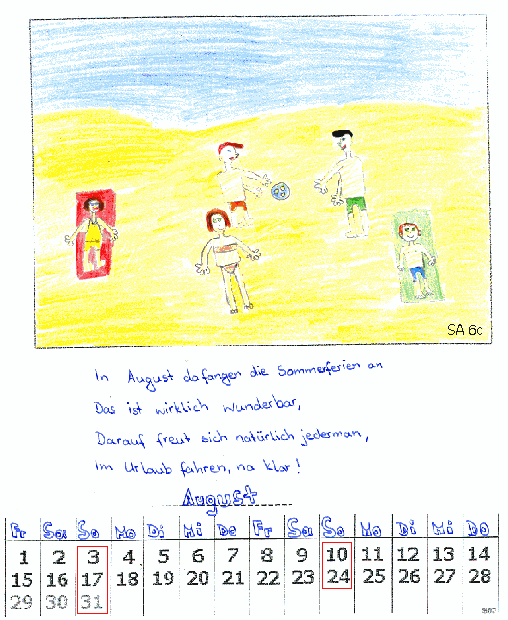 SA 6c
In August da fangen die Sommerferien an
Das ist wirklich wunderbar,
Darauf freut sich natürlich jederman,
im Urlaub fahren, na klar!
August
Fr Sa So Mo Di Mi Do Fr Sa So Mo Di Mi Do
1 2 3 4 5 6 7 8 9 10 11 12 13 14
15 16 17 18 19 20 21 22 23 24 25 26 27 28
29 30 31